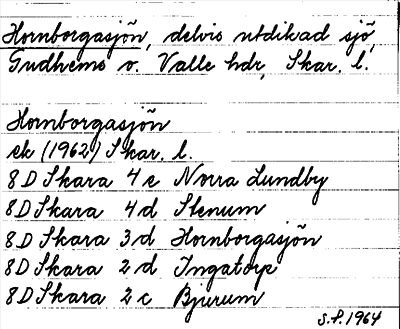 Hornborgasjön, delvis utdikad sjö,
Gudhems o. Valle hdr, Skar. l.
Hornborgasjön
ek (1962) Skar. l.
8D Skara 4 e Norra Lundby
8D Skara 4 d Stenum
8D Skara 3 d Hornborgasjön
8D Skara 2 d Ingatorp
8D Skara 2 c Bjurum
S.P. 1964